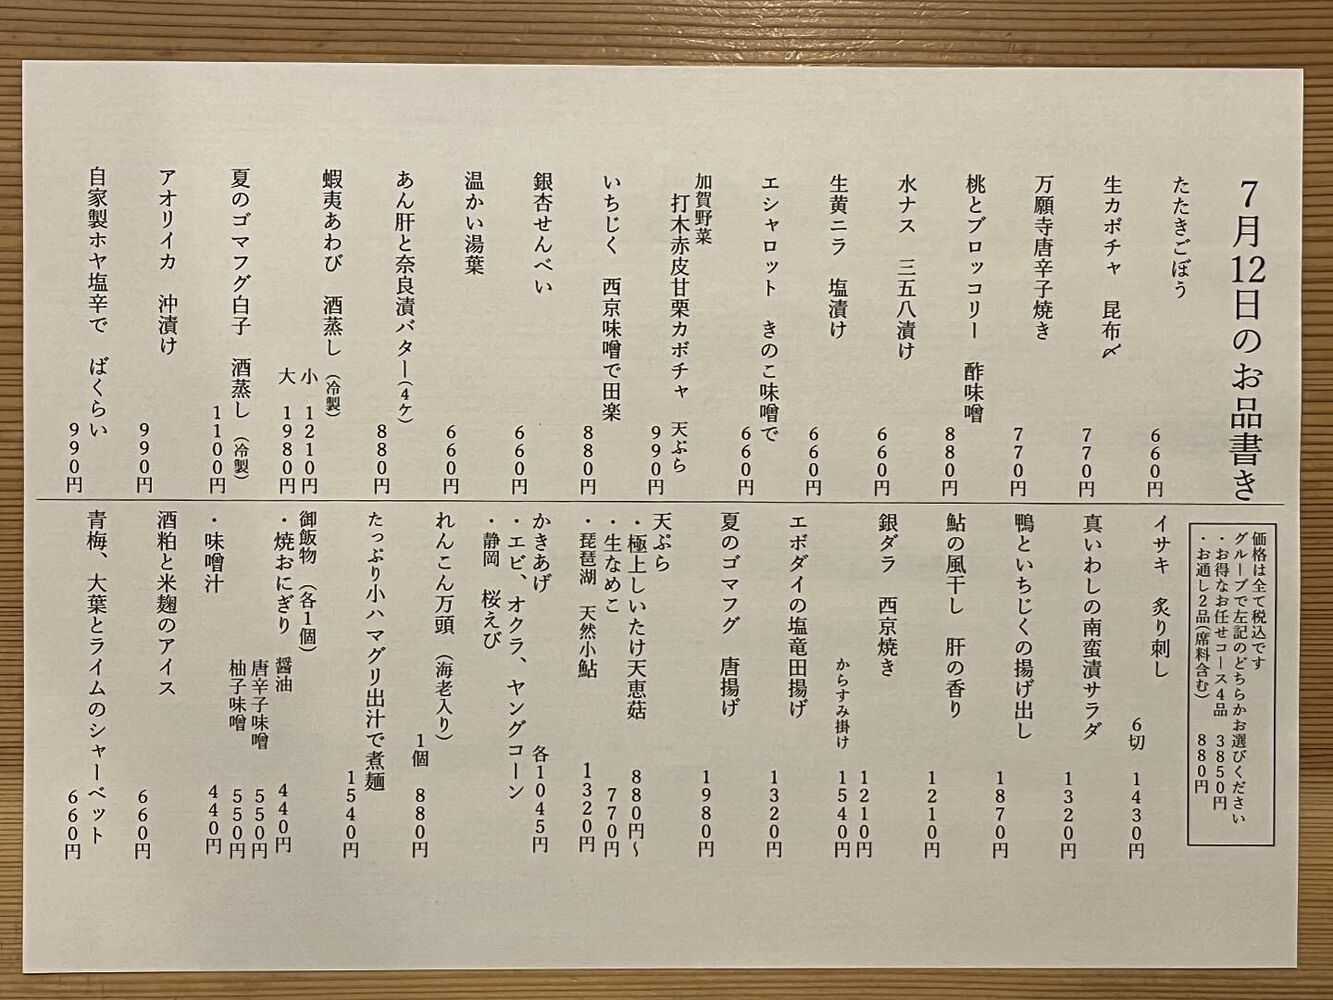 7月12日のお品書き
たたきごぼう 660円
生カボチャ 昆布〆 770円
万願寺唐辛子焼き 770円
桃とブロッコリー 酢味噌 880円
水ナス 三五八漬け 660円
生黄ニラ 塩漬け 660円
エシャロット きのこ味噌で 660円
加賀野菜
打木赤皮甘栗カボチャ 天ぷら 990円
いちじく 西京味噌で田楽 880円
銀杏せんべい 660円
温かい湯葉 660円
あん肝と奈良漬バター(4ケ) 880円
蝦夷あわび 酒蒸し(冷製)
小 1210円
大 1980円
夏のゴマフグ白子 酒蒸し(冷製) 1100円
アオリイカ 沖漬け 990円
自家製ホヤ塩辛で ばくらい 990円
価格は全て税込です
グループで左記のどちらかお選びください
・お得なお任せコース4品 3850円
・お通し2品(席料含む) 880円
イサキ 炙り刺し 6切 1430円
真いわしの南蛮漬サラダ 1320円
鴨といちじくの揚げ出し 1870円
鮎の風干し 肝の香り 1210円
銀ダラ 西京焼き 1210円
からすみ掛け 1540円
エボダイの塩竜田揚げ 1320円
夏のゴマフグ 唐揚げ 1980円
天ぷら
・極上しいたけ天恵菇 880円〜
・生なめこ 770円
・琵琶湖 天然小鮎 1320円
かきあげ 各1045円
・エビ、オクラ、ヤングコーン
・静岡 桜えび
れんこん万頭(海老入り) 1個 880円
たっぷり小ハマグリ出汁で煮麺 1540円
御飯物(各1個)
・焼おにぎり 醤油 440円
唐辛子味噌 550円
柚子味噌 550円
・味噌汁 440円
酒粕と米麹のアイス 660円
青梅、大葉とライムのシャーベット 660円